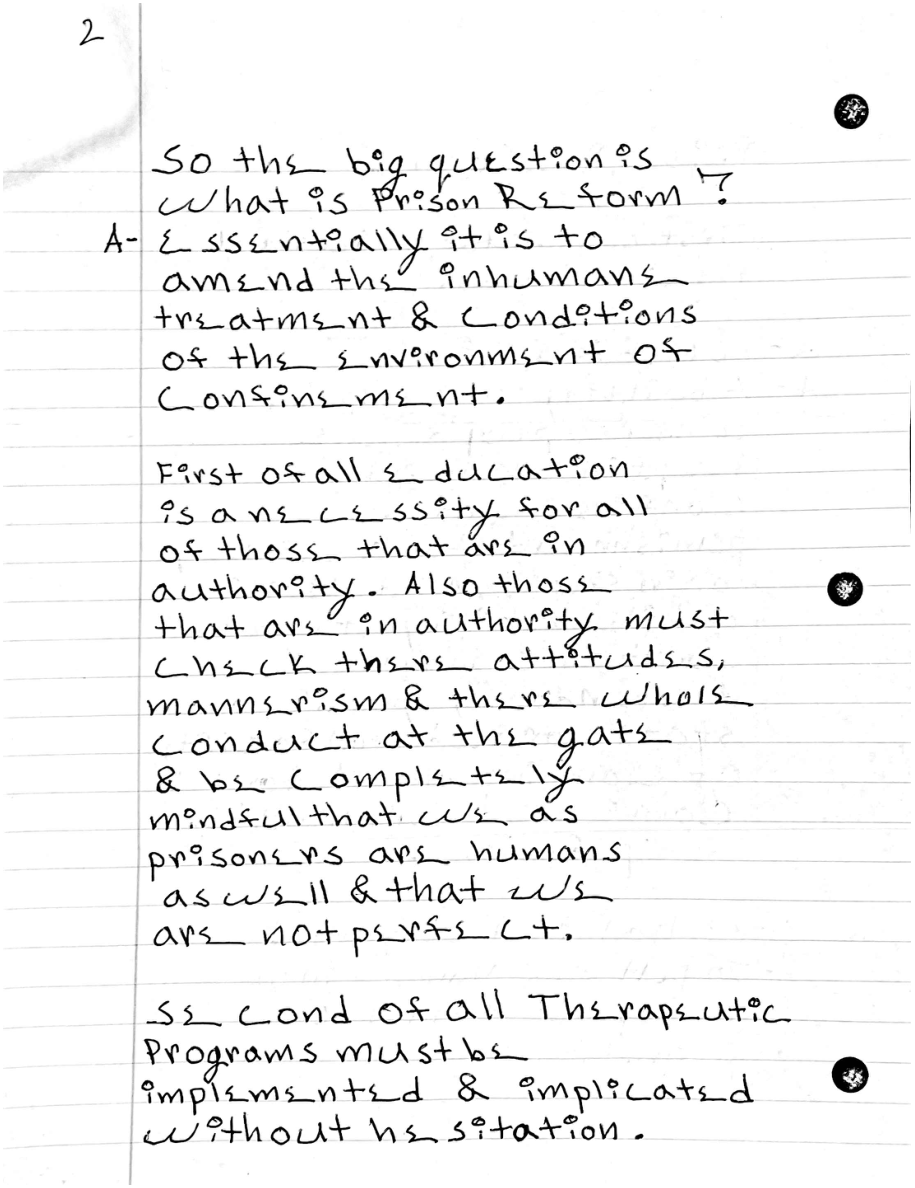 2
So the big question is
What is Prison Reform?
A- Essentially it is to
amend the inhumane
treatment & conditions
of the environment of
Confinement.
First of all education
is a necessity for all
of those that are in
authority. Also those
that are in authority must
check there attitudes,
mannerism & there whole
conduct at the gate
& be completely
mindful that we as
prisoners are humans
as well & that we
are not perfect.
Second of all Therapeutic
Programs must be
implemented & implicated
without hesitation.